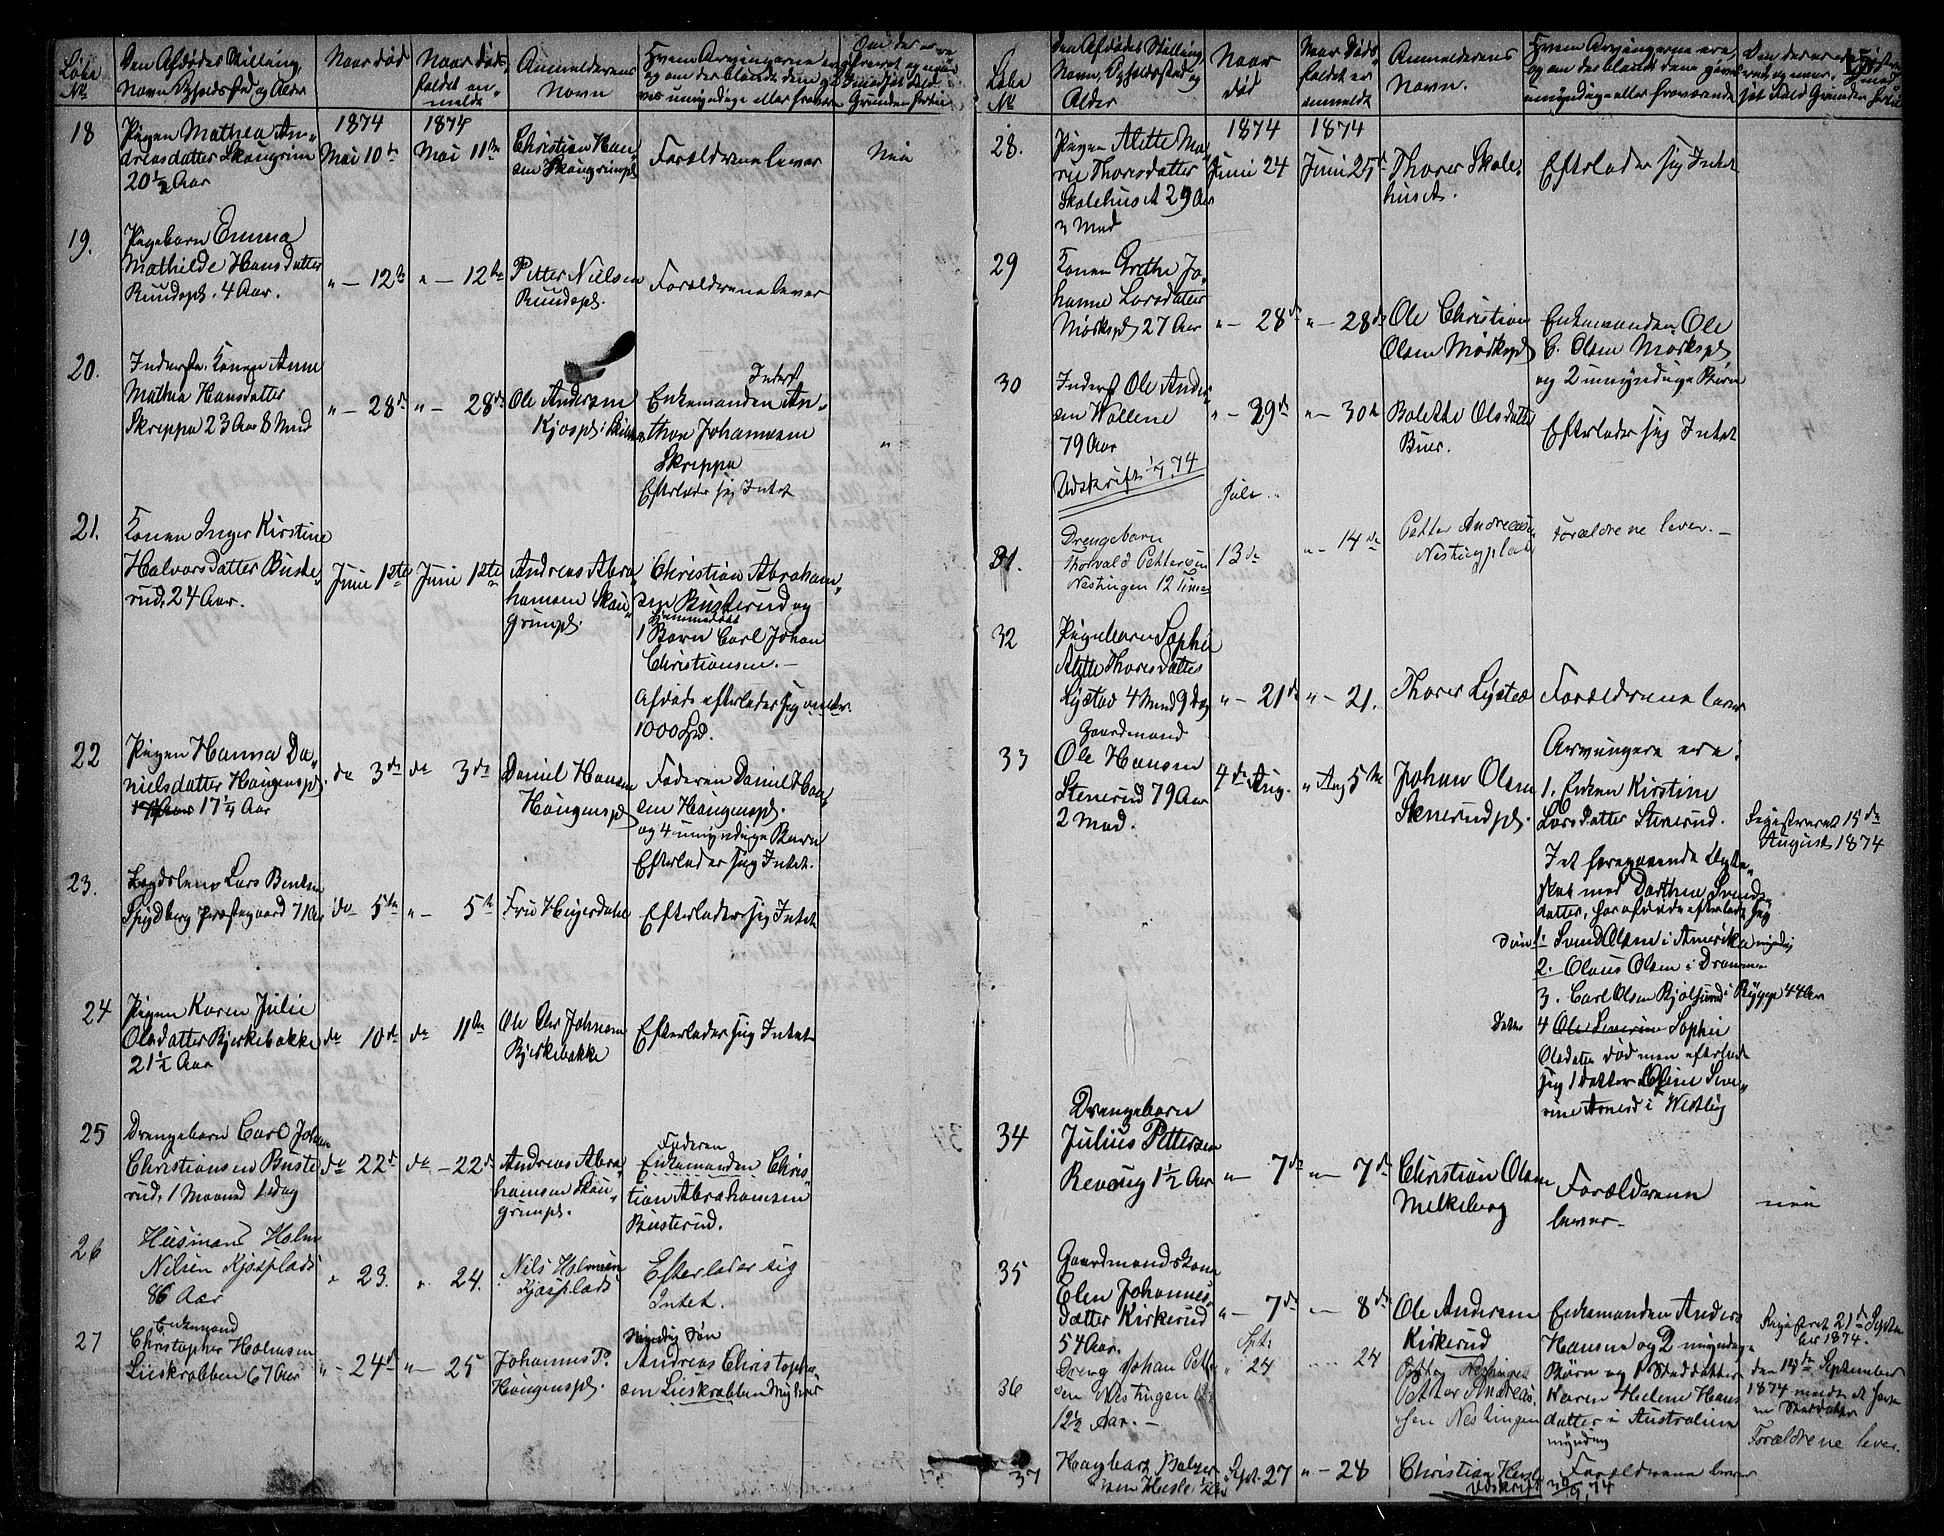 Løbe
No
Den Afdødes Stilling,
Navn Opholdssted og Alder
Naar død
Naar døds-
faldet an-
meldt
Anmelderens
Navn
18
Pigen Mathea An-
dreasdatter Skaugrim
20½ Aar
1874
Mai 10de
1874
Mai 11te
Christian Han
sen Skaugrimpl.
Forældrene lever
Nei
19.
Pigebarn Emma
Mathilde Hansdatter
Ruudspl. 4 Aar.
" – 12te
" – 12te
Petter Nielsen
Ruudspl.
Forældrene lever
20.
Inderste Konen Anne
Mathea Hansdatter
Skreppa 23 Aar 8 Mnd
" – 28de
" – 28de
Ole Andersen
Kjospl.
Inderst
Enkemanden An-
thon Johannesen
Skreppa
Efterlader sig Intet
"
21.
Konen Inger Kirstine
Halvorsdatter Buste
rud, 24 Aar.
Juni 1ste
Juni 1ste
Andreas Abra
hamsen Skau
grimpl.
Christian Abraham
sen Busterud og
1 Barn Carl Johan
Christiansen. –
Afdøde efterlader sig under
1000 Spd.
22
Pigen Hanna Da
nielsdatter Haugenspl
17¼ Aar
do 3de
do 3de
Daniel Hansen
Haugenspl
Faderen Daniel Han
sen Haugenspl.
og 4 umyndige Børn
Efterlader sig Intet.
23.
Lægdslem Lars Bentsen
Spydberg Præstegaard 71 Aar
do 5te
" – 5te
Fru Heyerdahl
Efterlader sig Intet
24
Pigen Karen Julie
Olsdatter Bjerkebakke
21½ Aar
do 10de
do 11te
Ole Chr Johnsen
Bjerkebakke
Efterlader sig Intet
25
Drengebarn Carl Johan
Christiansen Buste
rud, 1 Maaned 1 dag
do 22de
do – 22de
Andreas Abra
hamsen Skau
grimpl.
Faderen
Enkemanden Chris
tian Abrahamsen
Busterud.
26
Husmand Holm
Nilsen Kjosplads
86 Aar
" 23.
" 24.
Nils Holmsen
Kjosplads
Efterlader sig
Intet.
27
Enkemand
Christopher Holmsen
Liiskrabben 67 Aar
" – 24de
" – 25
Johannes P.
Haugenspl.
Myndig Søn
Andreas Christopher
sen Liiskrabben
Løbe
No
Den Afdødes Stilling
Navn, Opholdssted og
Alder
Naar
død
Naar Døds
faldet er
anmeldt
Anmelderens
Navn.
28.
Pigen Alette Ma
rie Thoresdatter
Skolehuset 29 Aar
3 Mnd
1874
Juni 24
1874
Juni 25de
Thorer Skole
huset.
Efterlader sig Intet
29
Konen Grethe Jo
hanne Larsdatter
Mørkspl 27 Aar
" – 28de
" – 28de
Ole Christian
Olsen Mørkspl
Enkemanden Ole
C. Olsen Mørkspl
og 2 umyndige Børn
30
Inderst Ole Ander
sen Vollene
79 Aar
Udskrift 1/7 74
" – 29de
" – 30te
Bolette Olsdatter
Buer.
Efterlader sig Intet
31.
Drengebarn
Thorvald Pettersen
Nestingen 12 Timer
Juli
13de
" – 14de
Petter Andreasen
Nestingplads
Forældrene lever. –
32
Pigebarn Sophie
Alette Thoresdatter
Lystad 4 Mnd 9 Dag
" – 21de
" – 21.
Thorer Lystad
Forældrene lever
33
Gaardmand
Ole Hansen
Stenerud 79 Aar
2 Mnd.
4de Aug.
" Aug 5te
Johan Olsen
Stenerudpl.
Arvingere ere:
1. Enken Kirstine
Larsdatter Stenerud.
I et foregaaende Ægte
skab med Dorthea Svends
datter, har afdøde efterladt sig
1. Svend Olsen i Amerika myndig
2. Olaus Olsen i Drammen
3. Carl Olsen Bjølsund i Rygge 44 Aar
4 Ole Severine Sophie
Olsdatter død men efterladt
sig 1 datter Oline Seve
rine i Westby
Registreret 15de
August 1874
34
Drengebarn
Julius Pettersen
Revoug 1½ Aar
" – 7de
" – 7de
Christian Olsen
Melkeberg
Forældrene
lever –
nei
35
Gaardmandskone
Elen Johannes
datter Kirkerud
54 Aar.
" – 7de
" – 8de
Ole Andersen
Kirkerud
Enkemanden Anders
Hansen og 2 myndige
Børn og 1 Steddatter
Karen Helene Hans
datter i Australien
myndig
Registreret 21de Septem
ber 1874.
36
Dreng Johan Petter
sen Nestingen
12½ Aar. –
Spt.
" 24
" 24
Petter Andreas
sen Nestingen
Forældrene lever
37
Hagbart Balzer
sen Hesle
Sept. 27
" – 28
Christian Hesle
Forældrene lever
Udskrift 30/9 74